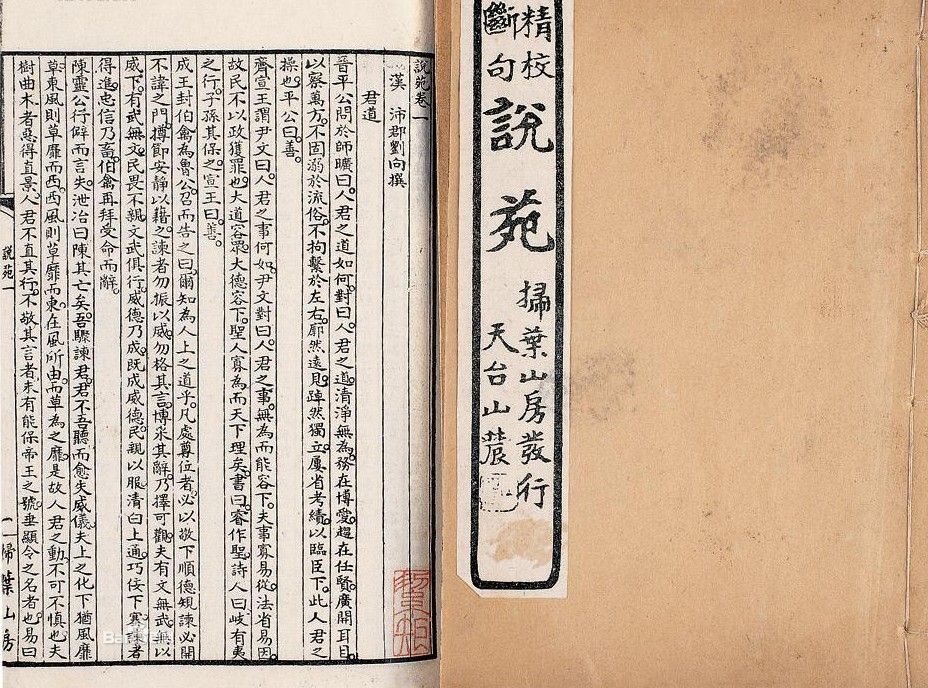 精校
斷句
說苑
掃葉山房發行
天台山農
說苑卷一
漢 沛郡劉向撰
君道
晉平公問於師曠曰。人君之道如何。對曰。人君之道。清淨無為。務在博愛。趨在任賢。廣開耳目。
以察萬方。不固溺於流俗。不拘繫於左右。廓然遠見。踔然獨立。屢省考績。以臨臣下。此人君之
操也。平公曰。善。
齊宣王謂尹文曰。人君之事何如。尹文對曰。人君之事。無為而能容下。夫事寡易從。法省易因。
故民不以政獲罪也。大道容眾。大德容下。聖人寡為而天下理矣。書曰。睿作聖。詩人曰。岐有夷
之行。子孫其保之。宣王曰。善。
成王封伯禽為魯公。召而告之曰。爾知為人上之道乎。凡處尊位者。必以敬下。順德規諫。必開
不諱之門。撙節安靜以藉之。諫者勿振以威。勿格其言。博采其辭。乃擇可觀。夫有文無武。無以
威下。有武無文。民畏不親。文武俱行。威德乃成。既成威德。民親以服。清白上通。巧佞下塞。諫者
得進。忠信乃畜。伯禽再拜受命而辭。
陳靈公行僻而言失。泄冶曰。陳其亡矣。吾驟諫君。君不吾聽。而愈失威儀。夫上之化下。猶風靡
草。東風則草靡而西。西風則草靡而東。在風所由。而草為之靡。是故人君之動。不可不慎也。夫
樹曲木者。惡得直景。人君不直其行。不敬其言者。未有能保帝王之號。垂顯令之名者也。易曰
說苑一
一
掃葉山房